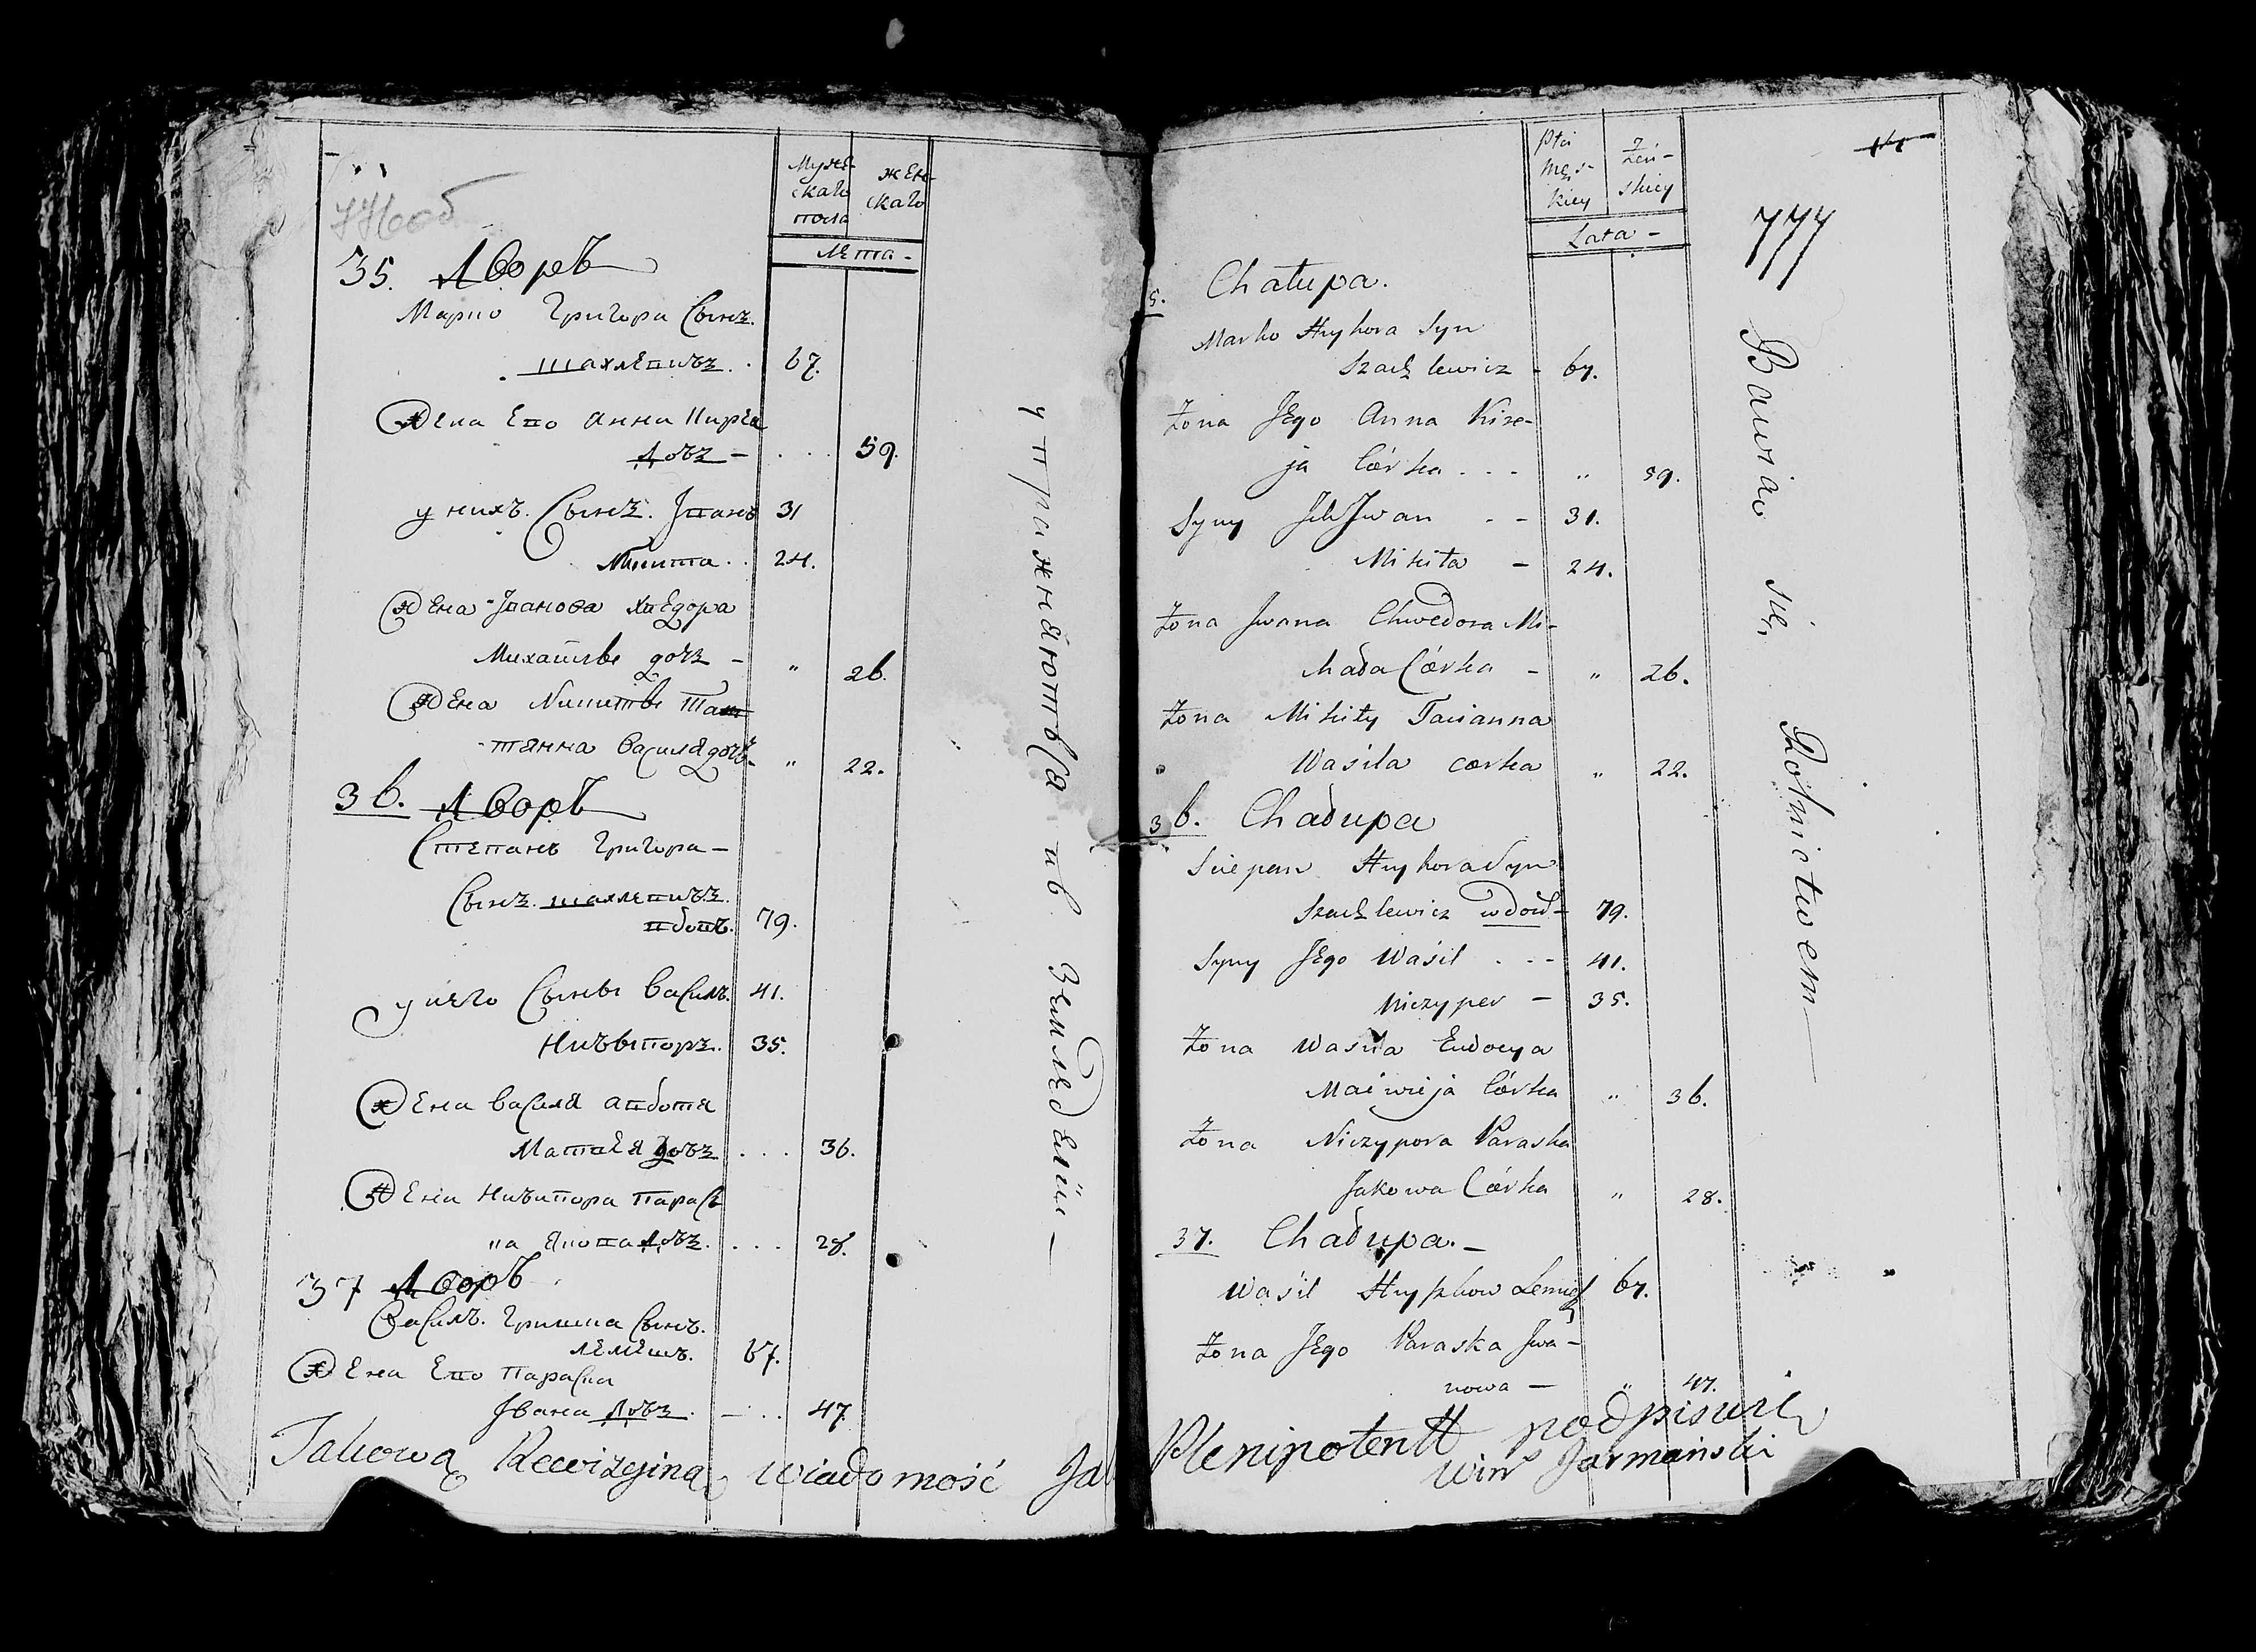 776 об
Муже-
скаго
пола
жен-
скаго
Лѣта -
35. Дворъ
Марко Григора Сынъ
шахлевичъ . 67.
Жена Его Анна Кирея
дочъ - . . . 59.
у нихъ Сынъ. Іванъ 31
Микита . . 24.
Жена Іванова хведора
Михайлы дочъ - " 26.
Жена Микиты Тат
-тянна Василя дочъ - " 22.
36. Дворъ
Степанъ Григора -
Сынъ шахлевичъ
вдовъ. 79.
у него Сыны Василъ. 41.
Ничыпоръ. 35.
Жена Василя Авдотя
Матвея дочъ . . . 36.
Жена Ничипора Парас
ка Якова дочъ. . . . 28.
37 Дворъ
Василъ. Гришка Сынъ.
лемешъ. 67.
Жена Его Параска
Івана дочъ. - . . 47.
упражняются въ Земледелiи —
Takową Rewizyiną wiadomość Ja
płci
męs-
kiey
żeń-
skiey
Lata -
777
5. Chałupa.
Marko Hryhora Syn
Szachlewicz - 67.
Żona Jego Anna Kire-
ja Córka . - - " 59.
Syny Ich Jwan - - 31.
Mikita - 24.
Żona Jwana Chwedora Mi-
chała Córka - " 26.
Żona Mikity Tacianna
Wasila corka " 22.
36. Chałupa
Sciepan Hryhora Syn
Szachlewicz wdow - 79.
Syny Jego Waśil . - - 41.
Niczyper - 35.
Żona Waśila Eudocya
Maćwieja Córka " 36.
Żona Niczypora Paraska
Jakowa Córka " 28.
37. Chałupa. -
Waśil Hryszkow Lemiesz 67.
Żona Jego Paraska Jwa-
nowa - " 47.
Plenipotentt podpisuię
Winc Jarmański
Bawiąc się Rolnictwem —